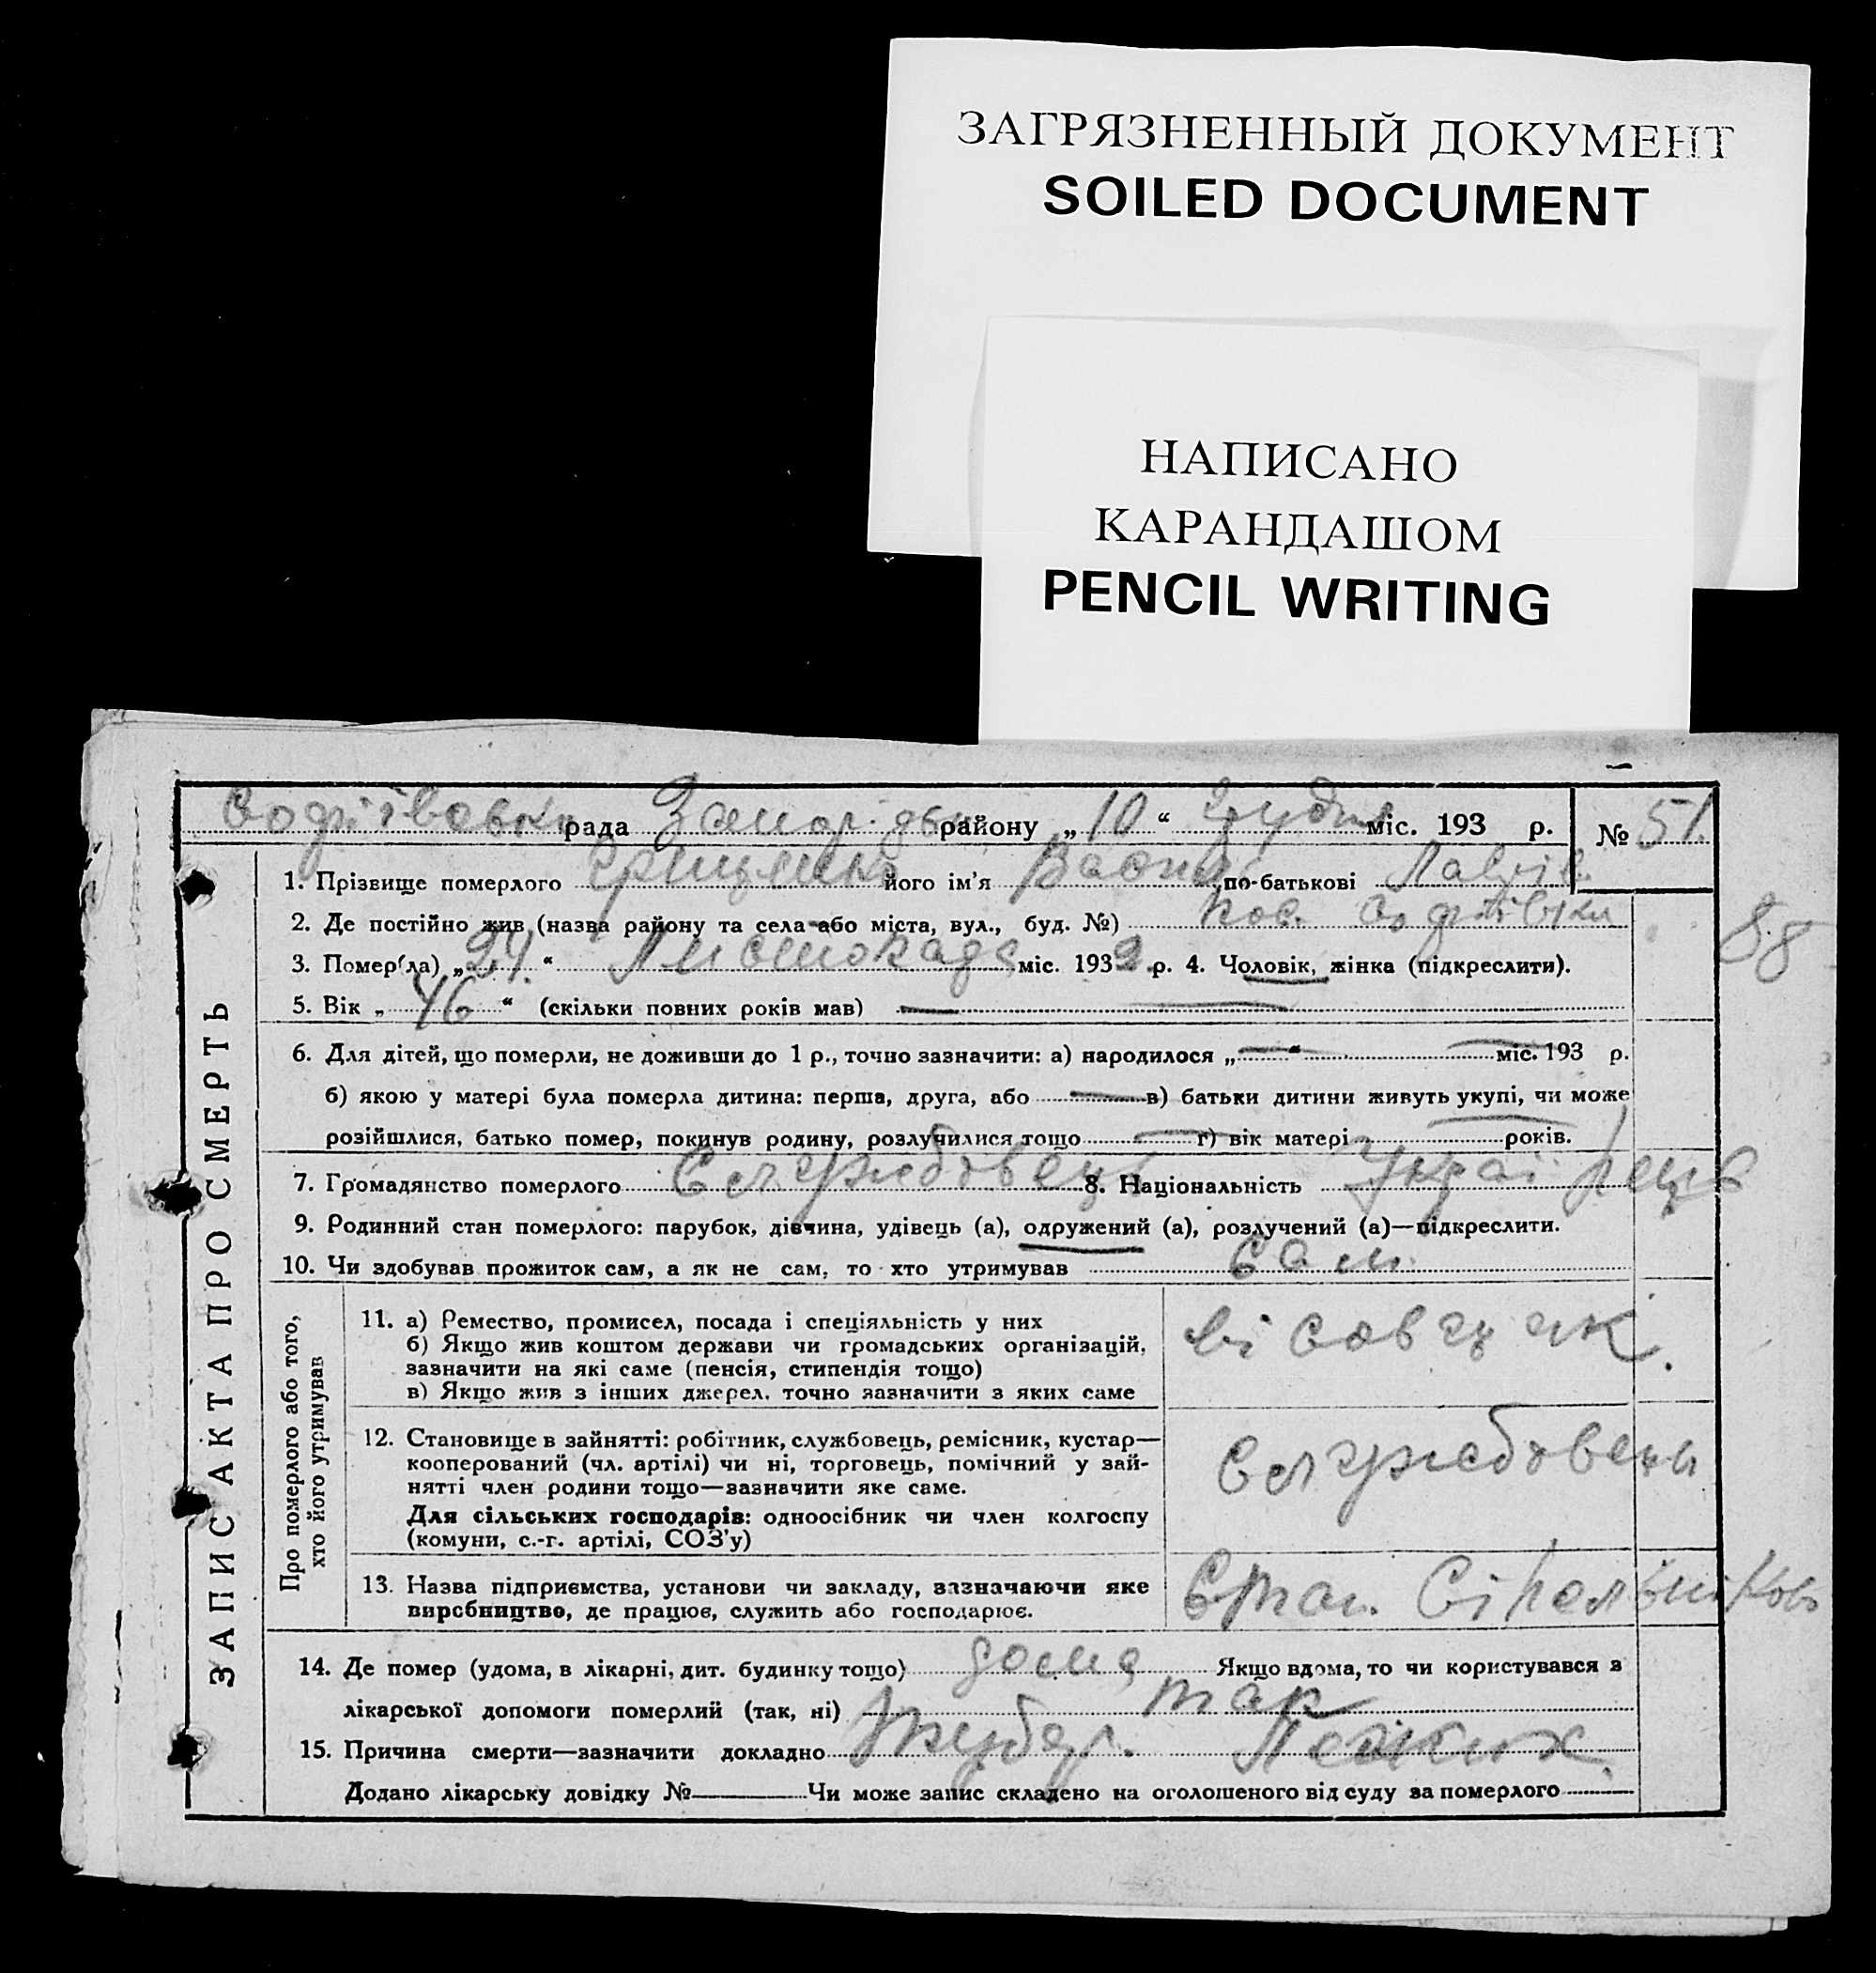 ЗАГРЯЗНЕННЫЙ ДОКУМЕНТ
SOILED DOCUMENT
НАПИСАНО
КАРАНДАШОМ
PENCIL WRITING
Софіївська рада район у „10“ Грудня міс. 193 р. № 51.
1. Прізвище померлого його ім’я Василь по-батькові Лаврів.
2. Де постійно жив (назва району та села або міста, вул., буд. №) Софіївки
3. Помер(ла) „24.“ Листопада міс. 1932 р. 4. Чоловік, жінка (підкреслити).
5. Вік „46“ (скільки повних років мав) —
6. Для дітей, що померли, не доживши до 1 р., точно зазначити: а) народилося „—“ — міс. 193 р.
б) якою у матері була померла дитина: перша, друга, або — в) батьки дитини живуть укупі, чи може
розійшлися, батько помер, покинув родину, розлучилися тощо — г) вік матері — років.
7. Громадянство померлого Служебовець 8. Національність Украінець
9. Родинний стан померлого: парубок, дівчина, удівець (а), одружений (а), розлучений (а)—підкреслити.
10. Чи здобував прожиток сам, а як не сам, то хто утримував сам.
ЗАПИС АКТА ПРО СМЕРТЬ
Про померлого або того,
хто його утримував
11. а) Ремество, промисел, посада і спеціяльність у них
б) Якщо жив коштом держави чи громадських організацій,
зазначити на які саме (пенсія, стипендія тощо)
в) Якщо жив з інших джерел, точно зазначити з яких саме
вісовщик.
12. Становище в зайнятті: робітник, службовець, ремісник, кустар—
кооперований (чл. артілі) чи ні, торговець, помічний у зай-
нятті член родини тощо—зазначити яке саме.
Для сільських господарів: одноосібник чи член колгоспу
(комуни, с.-г. артілі, СОЗ’у)
Служебовець
13. Назва підприємства, установи чи закладу, зазначаючи яке
виробництво, де працює, служить або господарює.
Стан.
14. Де помер (удома, в лікарні, дит. будинку тощо) дома Якщо вдома, то чи користувався з
лікарської допомоги померлий (так, ні) так
15. Причина смерти—зазначити докладно Тубер. Легких
Додано лікарську довідку № Чи може запис складено на оголошеного від суду за померлого
88